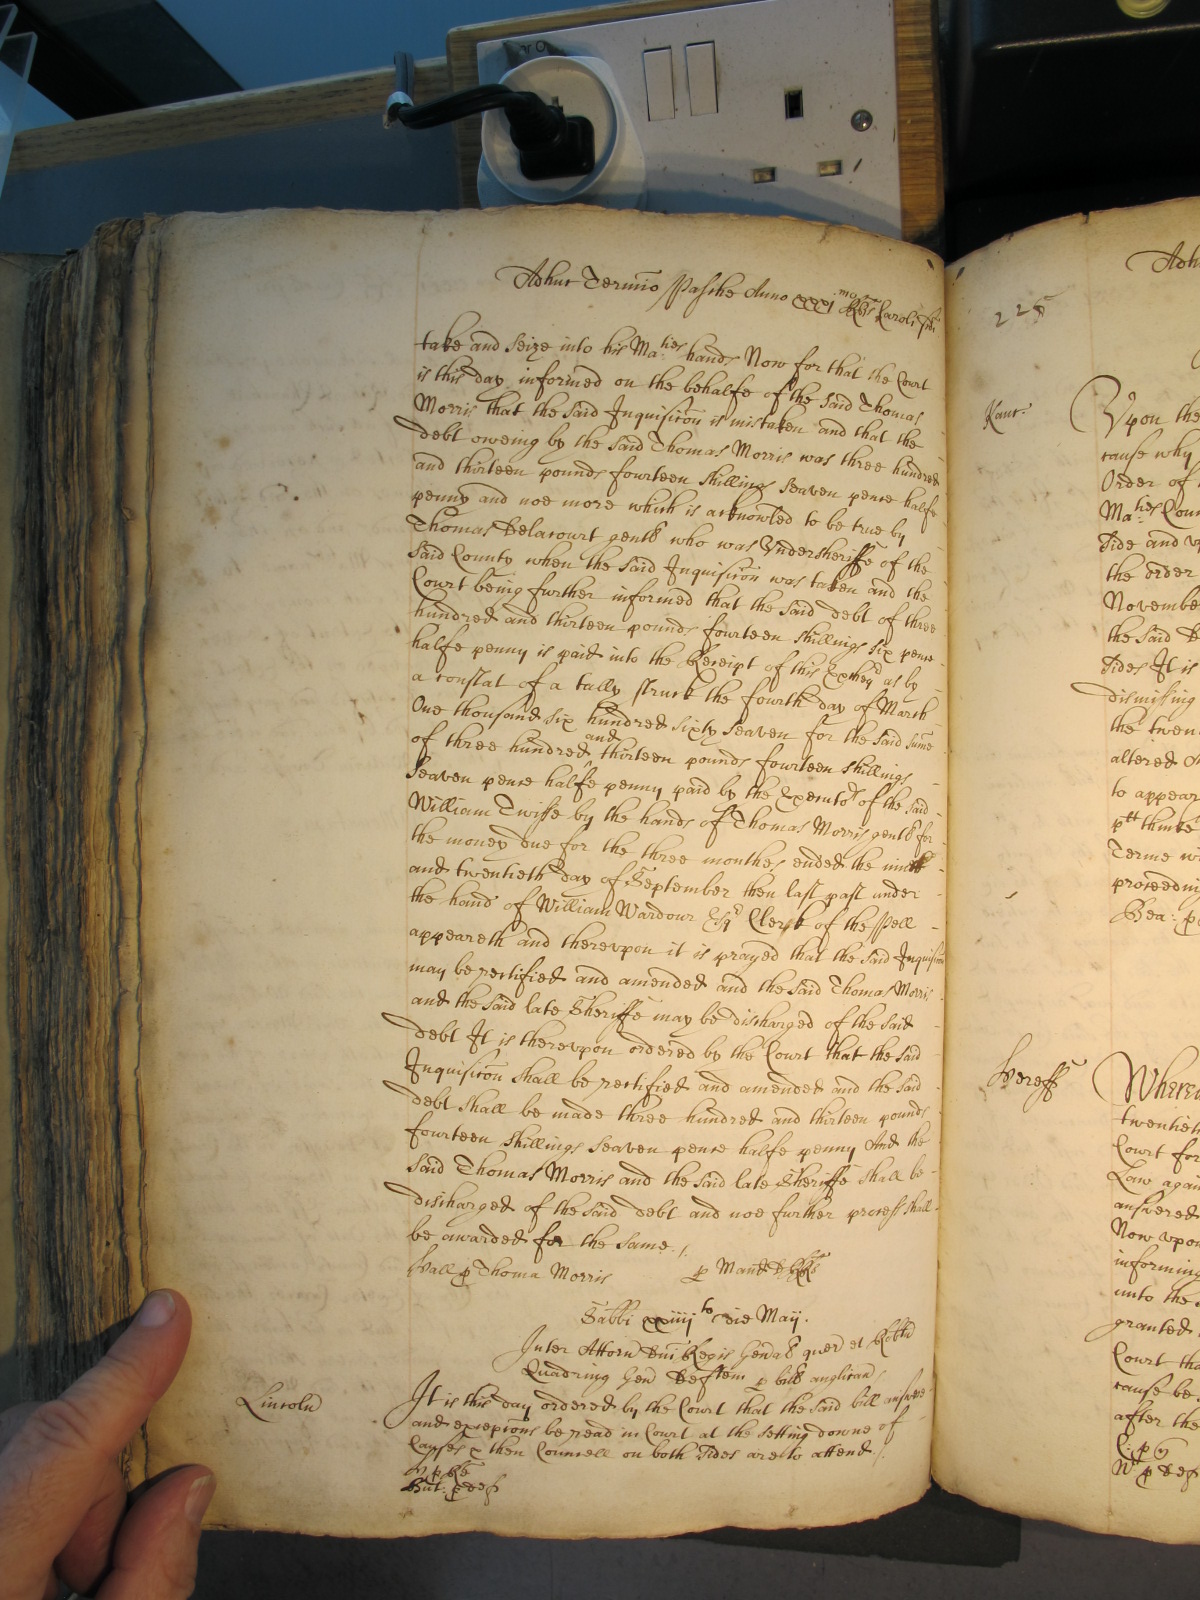 Adhuc Termio Pasche Anno xxxj mo RRs Caroli Scdi
take and seize into his Ma:ties hands Now for that the Court
is this day informed on the behalfe of the said Thomas
Morris that the said Inquisicon is mistaken and that the
debt oweing by the said Thomas Morris was three hundred
and thirteen pounds fourteen shillings seaven pence halfe
penny and noe more which is acknowled to be true by
Thomas Delacourt gent who was Vndersheriffe of the
said County when the said Inquisicon was taken and the
Court being further informed that the said debt of three
hundred and thirteen pounds fourteen shillings six pence
halfe penny is paid into the Receipt of this Excheqr as by
a constat of a tally struck the fourth day of March
One thousand six hundred sixty seaven for the said sume
of three hundred and thirteen pounds fourteen shillings
seaven pence halfe penny paid by the Executors of the said
William Twisse by the hands of Thomas Morris gent for
the money due for the three monthes ended the nine
and twentieth day of September then last past under
the hand of William Wardour Esqr Clerk of the Pell
appeareth and therevpon it is prayed that the said Inquisicon
may be rectified and amended and the said Thomas Morris
and the said late Sheriffe may be discharged of the said
debt It is therevpon ordered by the Court that the said
Inquisicon shall be rectified and amended and the said
debt shall be made three hundred and thirteen pounds
fourteen shillings seaven pence halfe penny And the
said Thomas Morris and the said late Sheriffe shall be
discharged of the said debt and noe further process shall
be awarded for the same
Hall p Thoma Morris p Mand
Sabbi xxiiij to die Maij.
Inter Attorn Dni Regis Genall quer et Robtu
Quadring Gen Deften p bill anglican
Lincoln
It is this day ordered by the Court that the said bill answere
and excepcons be read in Court at the setting downe of
Causes & then Councell on both sides are to attend
p Re
But: p def
Adh
225
Kanc:
Vpon the
cause why
Order of
Ma:ties Cour
side and v
the order
November
the said
sides It is
dismissing
the twen
altered
to appear
ptt thinke
Terme
proceedin
Bea: p
Hereff
Wherea
twentieth
Court for
Law again
answered
Now vpon
informing
unto the
granted
Court tha
cause be
after the
C: p
W p def